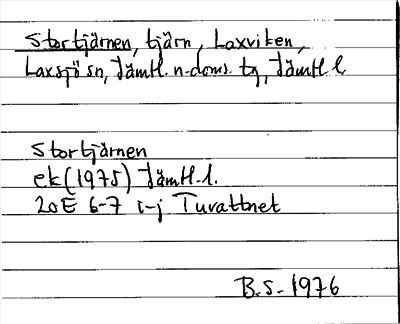 Stortjärnen, tjärn, Laxviken,
Laxsjö sn, Jämtl. n. doms. tg, Jämtl. l.
Stortjärnen
ek (1975) Jämtl. l.
20E 6-7 i-j Tuvattnet
B.S. 1976